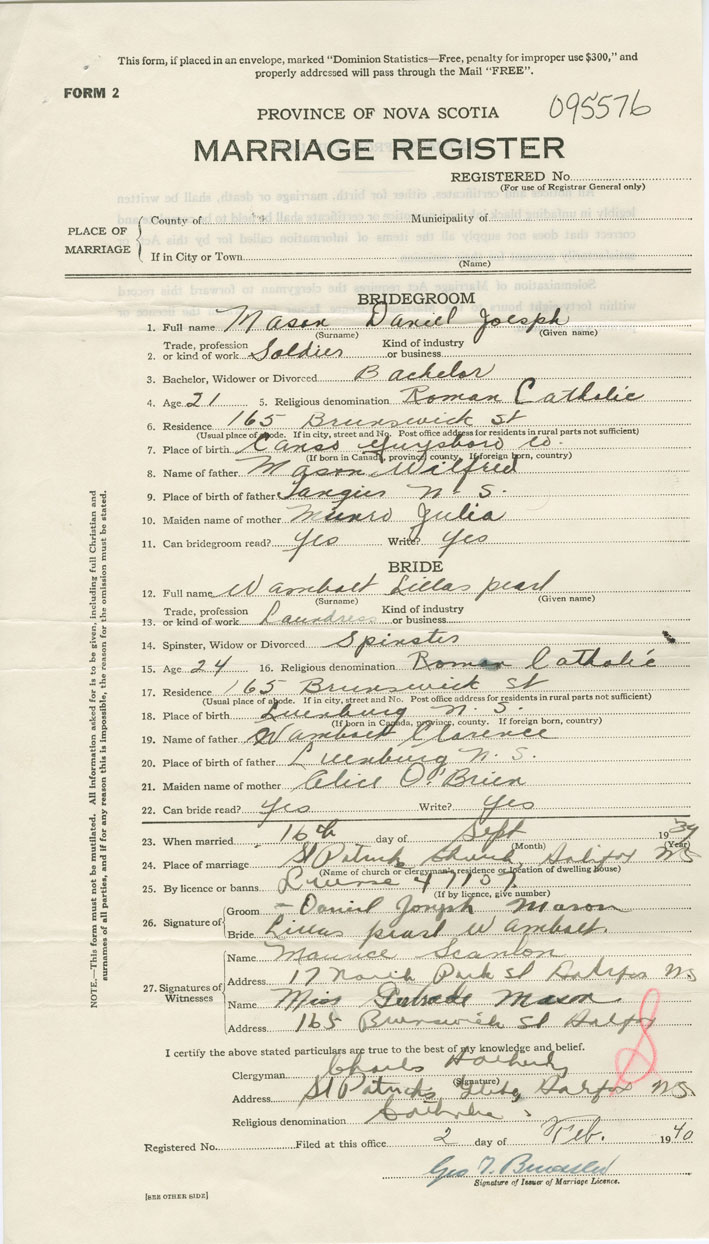 This form, if placed in an envelope, marked "Dominion Statistics—Free, penalty for improper use $300," and
properly addressed will pass through the Mail "FREE".
FORM 2
PROVINCE OF NOVA SCOTIA 095576
MARRIAGE REGISTER
REGISTERED No.
(For use of Registrar General only)
PLACE OF MARRIAGE
County of Municipality of
If in City or Town
(Name)
BRIDEGROOM
1. Full name Mason Daniel Joesph
(Surname) (Given name)
2. Trade, profession or kind of work Soldier Kind of industry or business
3. Bachelor, Widower or Divorced Bachelor
4. Age 21 5. Religious denomination Roman Catholic
6. Residence 165 Brunswick St
(Usual place of abode. If in city, street and No. Post office address for residents in rural parts not sufficient)
7. Place of birth Canso Guysboro Co.
(If born in Canada, province, county. If foreign born, country)
8. Name of father Mason Wilfred
9. Place of birth of father Tangier N. S.
10. Maiden name of mother Munro Julia
11. Can bridegroom read? Yes Write? Yes
BRIDE
12. Full name Wambolt Lillas pearl
(Surname) (Given name)
13. Trade, profession or kind of work Laundress Kind of industry or business
14. Spinster, Widow or Divorced Spinster
15. Age 24 16. Religious denomination Roman Catholic
17. Residence 165 Brunswick St
(Usual place of abode. If in city, street and No. Post office address for residents in rural parts not sufficient)
18. Place of birth Luenburg N. S.
(If born in Canada, province, county. If foreign born, country)
19. Name of father Wambolt Clarence
20. Place of birth of father Luenburg N. S.
21. Maiden name of mother Alice O'Brien
22. Can bride read? Yes Write? Yes
23. When married 16th day of Sept 1939
(Month) (Year)
24. Place of marriage St Patricks Church, Halifax NS
(Name of church or clergyman's residence or location of dwelling house)
25. By licence or banns License
(If by licence, give number)
26. Signature of
Groom Daniel Joseph Mason
Bride Lillas pearl Wambolt.
27. Signatures of Witnesses
Name Maurice Scanlon
Address 17 North Park St Halifax NS
Name Miss Gertrude Mason
Address 165 Brunswick St Halifax
I certify the above stated particulars are true to the best of my knowledge and belief.
Clergyman Charles
(Signature)
Address St Patricks Glebe, Halifax NS
Religious denomination Catholic
Registered No. Filed at this office 2 day of Feb. 1940
Geo T.
Signature of Issuer of Marriage Licence.
[SEE OTHER SIDE]
NOTE.—This form must not be mutilated. All information asked for is to be given, including full Christian and
surnames of all parties, and if for any reason this is impossible, the reason for the omission must be stated.